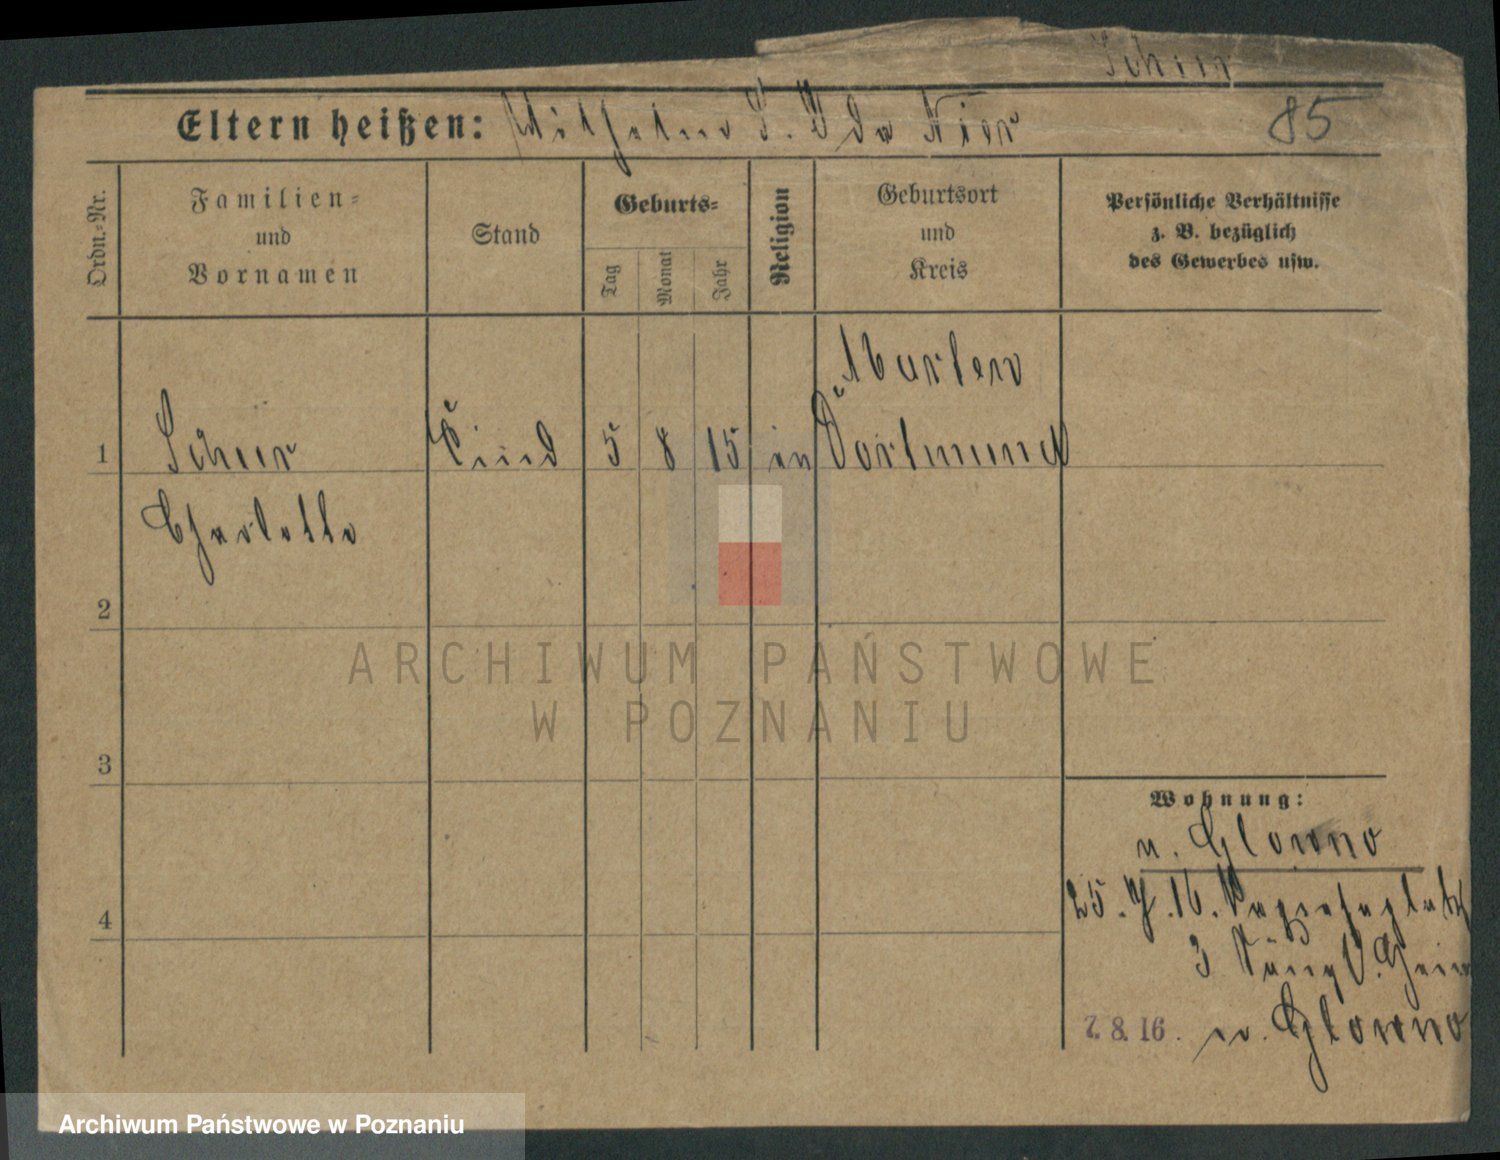 Schur
85
Eltern heißen: Wilhelm S. Ida Nier
Ordn.-Nr.
Familien-
und
Vornamen
Stand
Geburts-
Tag
Monat
Jahr
Religion
Geburtsort
und
Kreis
Persönliche Verhältnisse
z. B. bezüglich
des Gewerbes usw.
Marten
1 Schur Kind 5 8 15 ev Dortmund
Charlotte
2
3
4
ARCHIWUM PAŃSTWOWE
W POZNANIU
Wohnung:
n. Glowno
25. 7. 16.
3 Säugl. Heim
7. 8. 16. n. Glowno
Archiwum Państwowe w Poznaniu